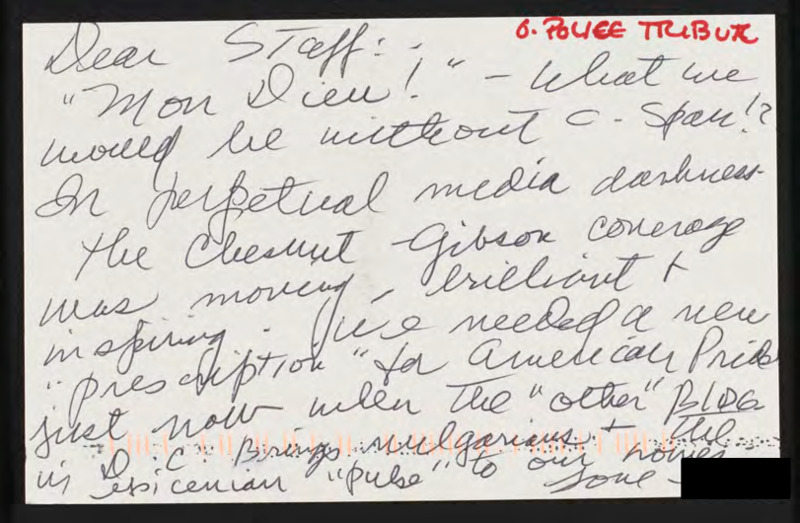 6. POLICE TRIBUTE
Dear Staff: -
"Mon Dieu!" - what we
would be without C-Span!?
In perpetual media darkness.
The Chesnut-Gibson coverage
was moving, brilliant +
inspiring. We needed a new
"prescription" for American Pride
just now when the "other" BLDG
in D.C. Brings vulgarians + the
"pulse" to our homes.